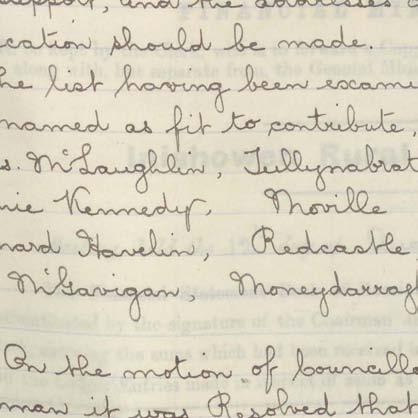 support, and the addresses
cation should be made.
he list having been exami
named as fit to contribute
s. McLaughlin, Tullynabrat
nie Kennedy, Moville
nard Havelin, Redcastle
McGavigan, Moneydarragh
On the motion of councillo
man it was Resolved that